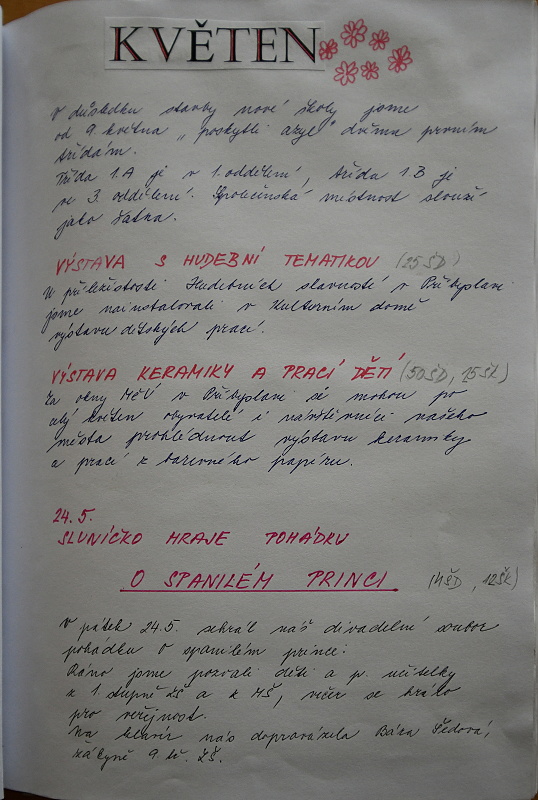 KVĚTEN
V důsledku stavby nové školy jsme
od 9. května „poskytli azyl“ dvěma prvním
třídám.
Třída 1.A je v 1. oddělení, třída 1.B je
ve 3. oddělení. Společenská místnost slouží
jako šatna.
VÝSTAVA S HUDEBNÍ TEMATIKOU (25 ŠD)
U příležitosti Hudebních slavností v Přibyslavi
jsme nainstalovali v Kulturním domě
výstavu dětských prací.
VÝSTAVA KERAMIKY A PRACÍ DĚTÍ (50 ŠD, 15 ŠK)
Za okny MěÚ v Přibyslavi si mohou po
celý květen obyvatelé i návštěvníci našeho
města prohlédnout výstavu keramiky
a prací z barevného papíru.
24.5.
SLUNÍČKO HRAJE POHÁDKU
O SPANILÉM PRINCI (4 ŠD, 12 ŠK)
V pátek 24.5. sehrál náš divadelní soubor
pohádku o spanilém princi.
Ráno jsme pozvali děti a p. učitelky
z 1. stupně ZŠ a z MŠ, večer se hrálo
pro veřejnost.
Na klavír nás doprovázela Bára Šedová,
žákyně 9. tř. ZŠ.